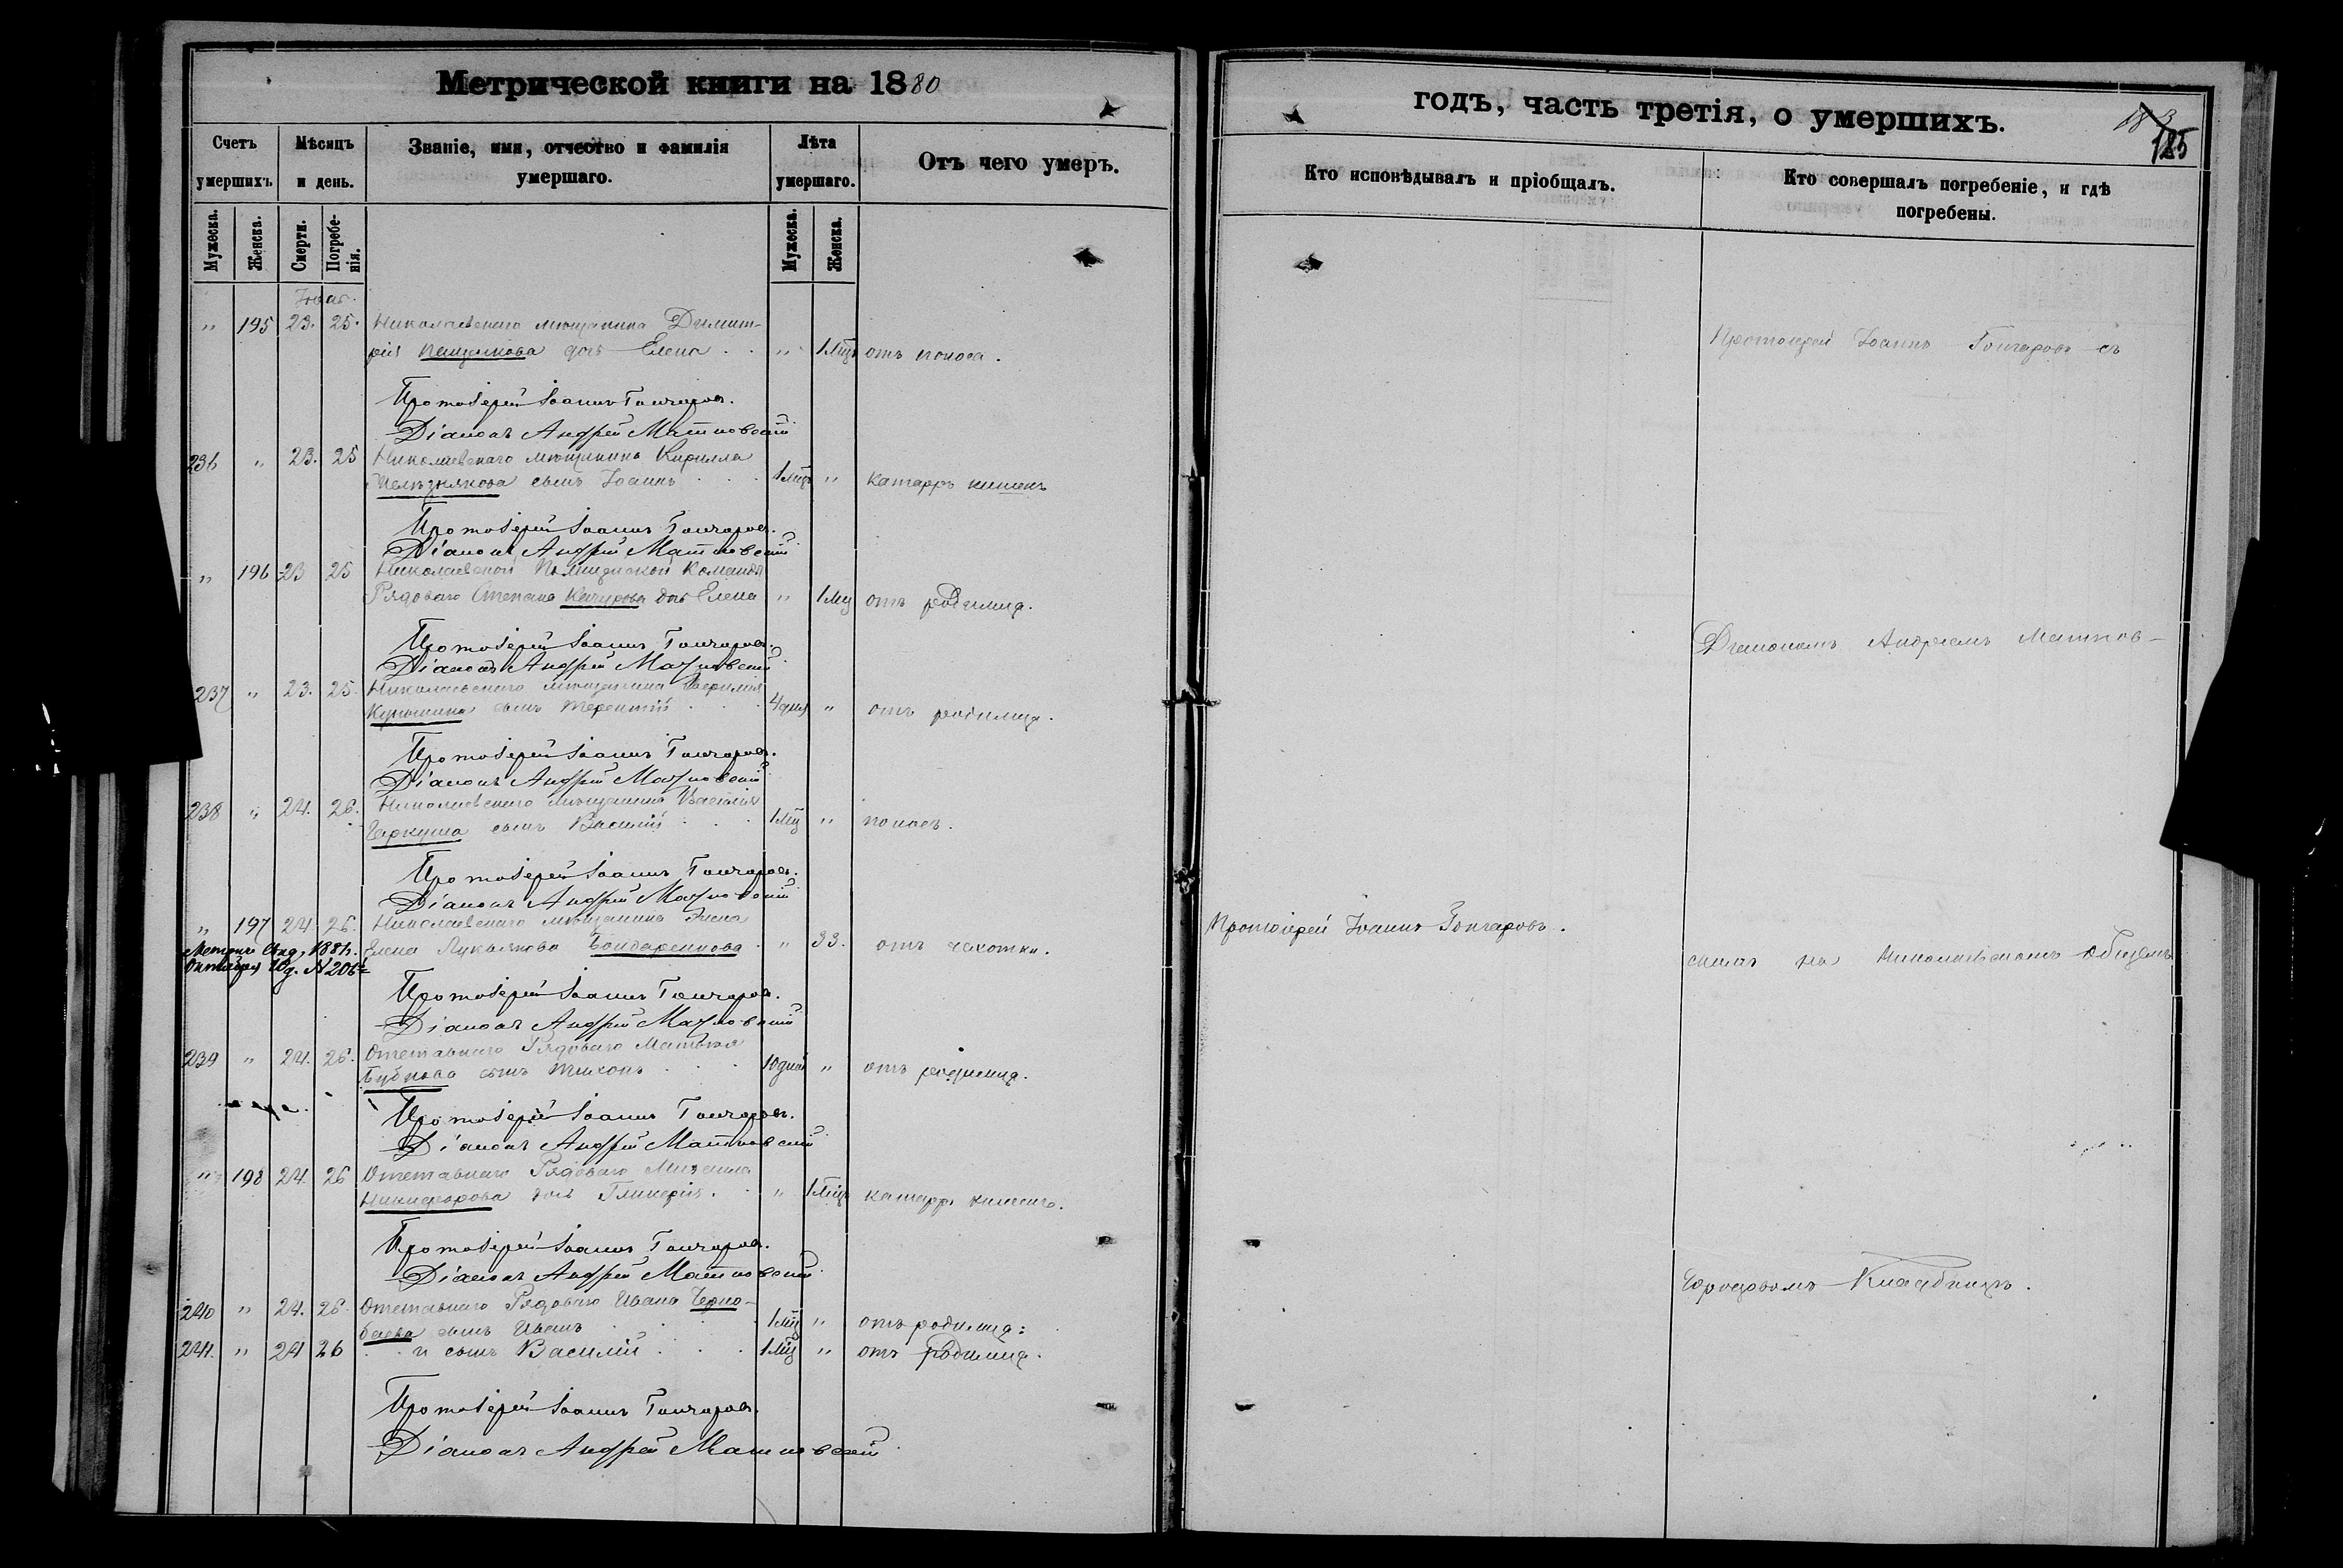 Метрической книги на 1880
Счетъ умершихъ.
Мѣсяцъ и день.
Званіе, имя, отчество и фамилія умершаго.
Лѣта умершаго.
Отъ чего умеръ.
Мужеска.
Женска.
Смерти.
Погребенія.
Мужеска.
Женска.
" 195 23. 25. Николаевскаго мѣщанина Димит-
рія дочь Елена . . " 1 мцъ отъ поноса.
Протоіерей Іоаннъ Гончаровъ.
Діаконъ Андрей Матковскій
236 " 23. 25 Николаевскаго мѣщанина Кирилла
Желѣзнякова сынъ Іоаннъ . . . 1 мцъ " катарръ кишекъ
Протоіерей Іоаннъ Гончаровъ.
Діаконъ Андрей Матковскій
" 196 23 25 Николаевской Полицейской Команды
Рядоваго Степана дочь Елена " 1 мц отъ родимца.
Протоіерей Іоаннъ Гончаровъ.
Діаконъ Андрей Матковскій
237 " 23. 25. Николаевскаго мѣщанина
сынъ Терентій . . . 4 дня " отъ родимца.
Протоіерей Іоаннъ Гончаровъ.
Діаконъ Андрей Матковскій
238 " 24. 26. Николаевскаго мѣщанина Василія
Гаркуша сынъ Василій . . . 1 мц " поносъ.
Протоіерей Іоаннъ Гончаровъ.
Діаконъ Андрей Матковскій
" 197 24 26. Николаевскаго мѣщанина жена
Елена Лукьянова Бондаренкова . " 33. отъ чахотки.
1881 г.
Октября 10 д. № 206
Протоіерей Іоаннъ Гончаровъ.
Діаконъ Андрей Матковскій
239 " 24. 26. Отставнаго Рядоваго Матвѣя
Бубнова сынъ Тихонъ . . . 10 дней " отъ родимца.
Протоіерей Іоаннъ Гончаровъ.
Діаконъ Андрей Матковскій
" 198 24. 26 Отставнаго Рядоваго Михаила
Никифорова дочь Гликерія. . " 1 мцъ катарръ кишекъ.
Протоіерей Іоаннъ Гончаровъ.
Діаконъ Андрей Матковскій
240 " 24. 26. Отставнаго Рядоваго Ивана Черно-
баева сынъ Иванъ . . . . 1 мц " отъ родимца:
241. " 24 26 . . и сынъ Василій . . . 1 мц " отъ родимца.
Протоіерей Іоаннъ Гончаровъ.
Діаконъ Андрей Матковскій
годъ, часть третія, о умершихъ.
185
Кто исповѣдывалъ и пріобщалъ.
Кто совершалъ погребеніе, и гдѣ погребены.
Протоіерей Іоаннъ Гончаровъ съ
Діакономъ Андреемъ Матков-
Протоіерей Іоаннъ Гончаровъ.
скимъ на Николаевскомъ общемъ
Городовомъ Кладбищѣ.